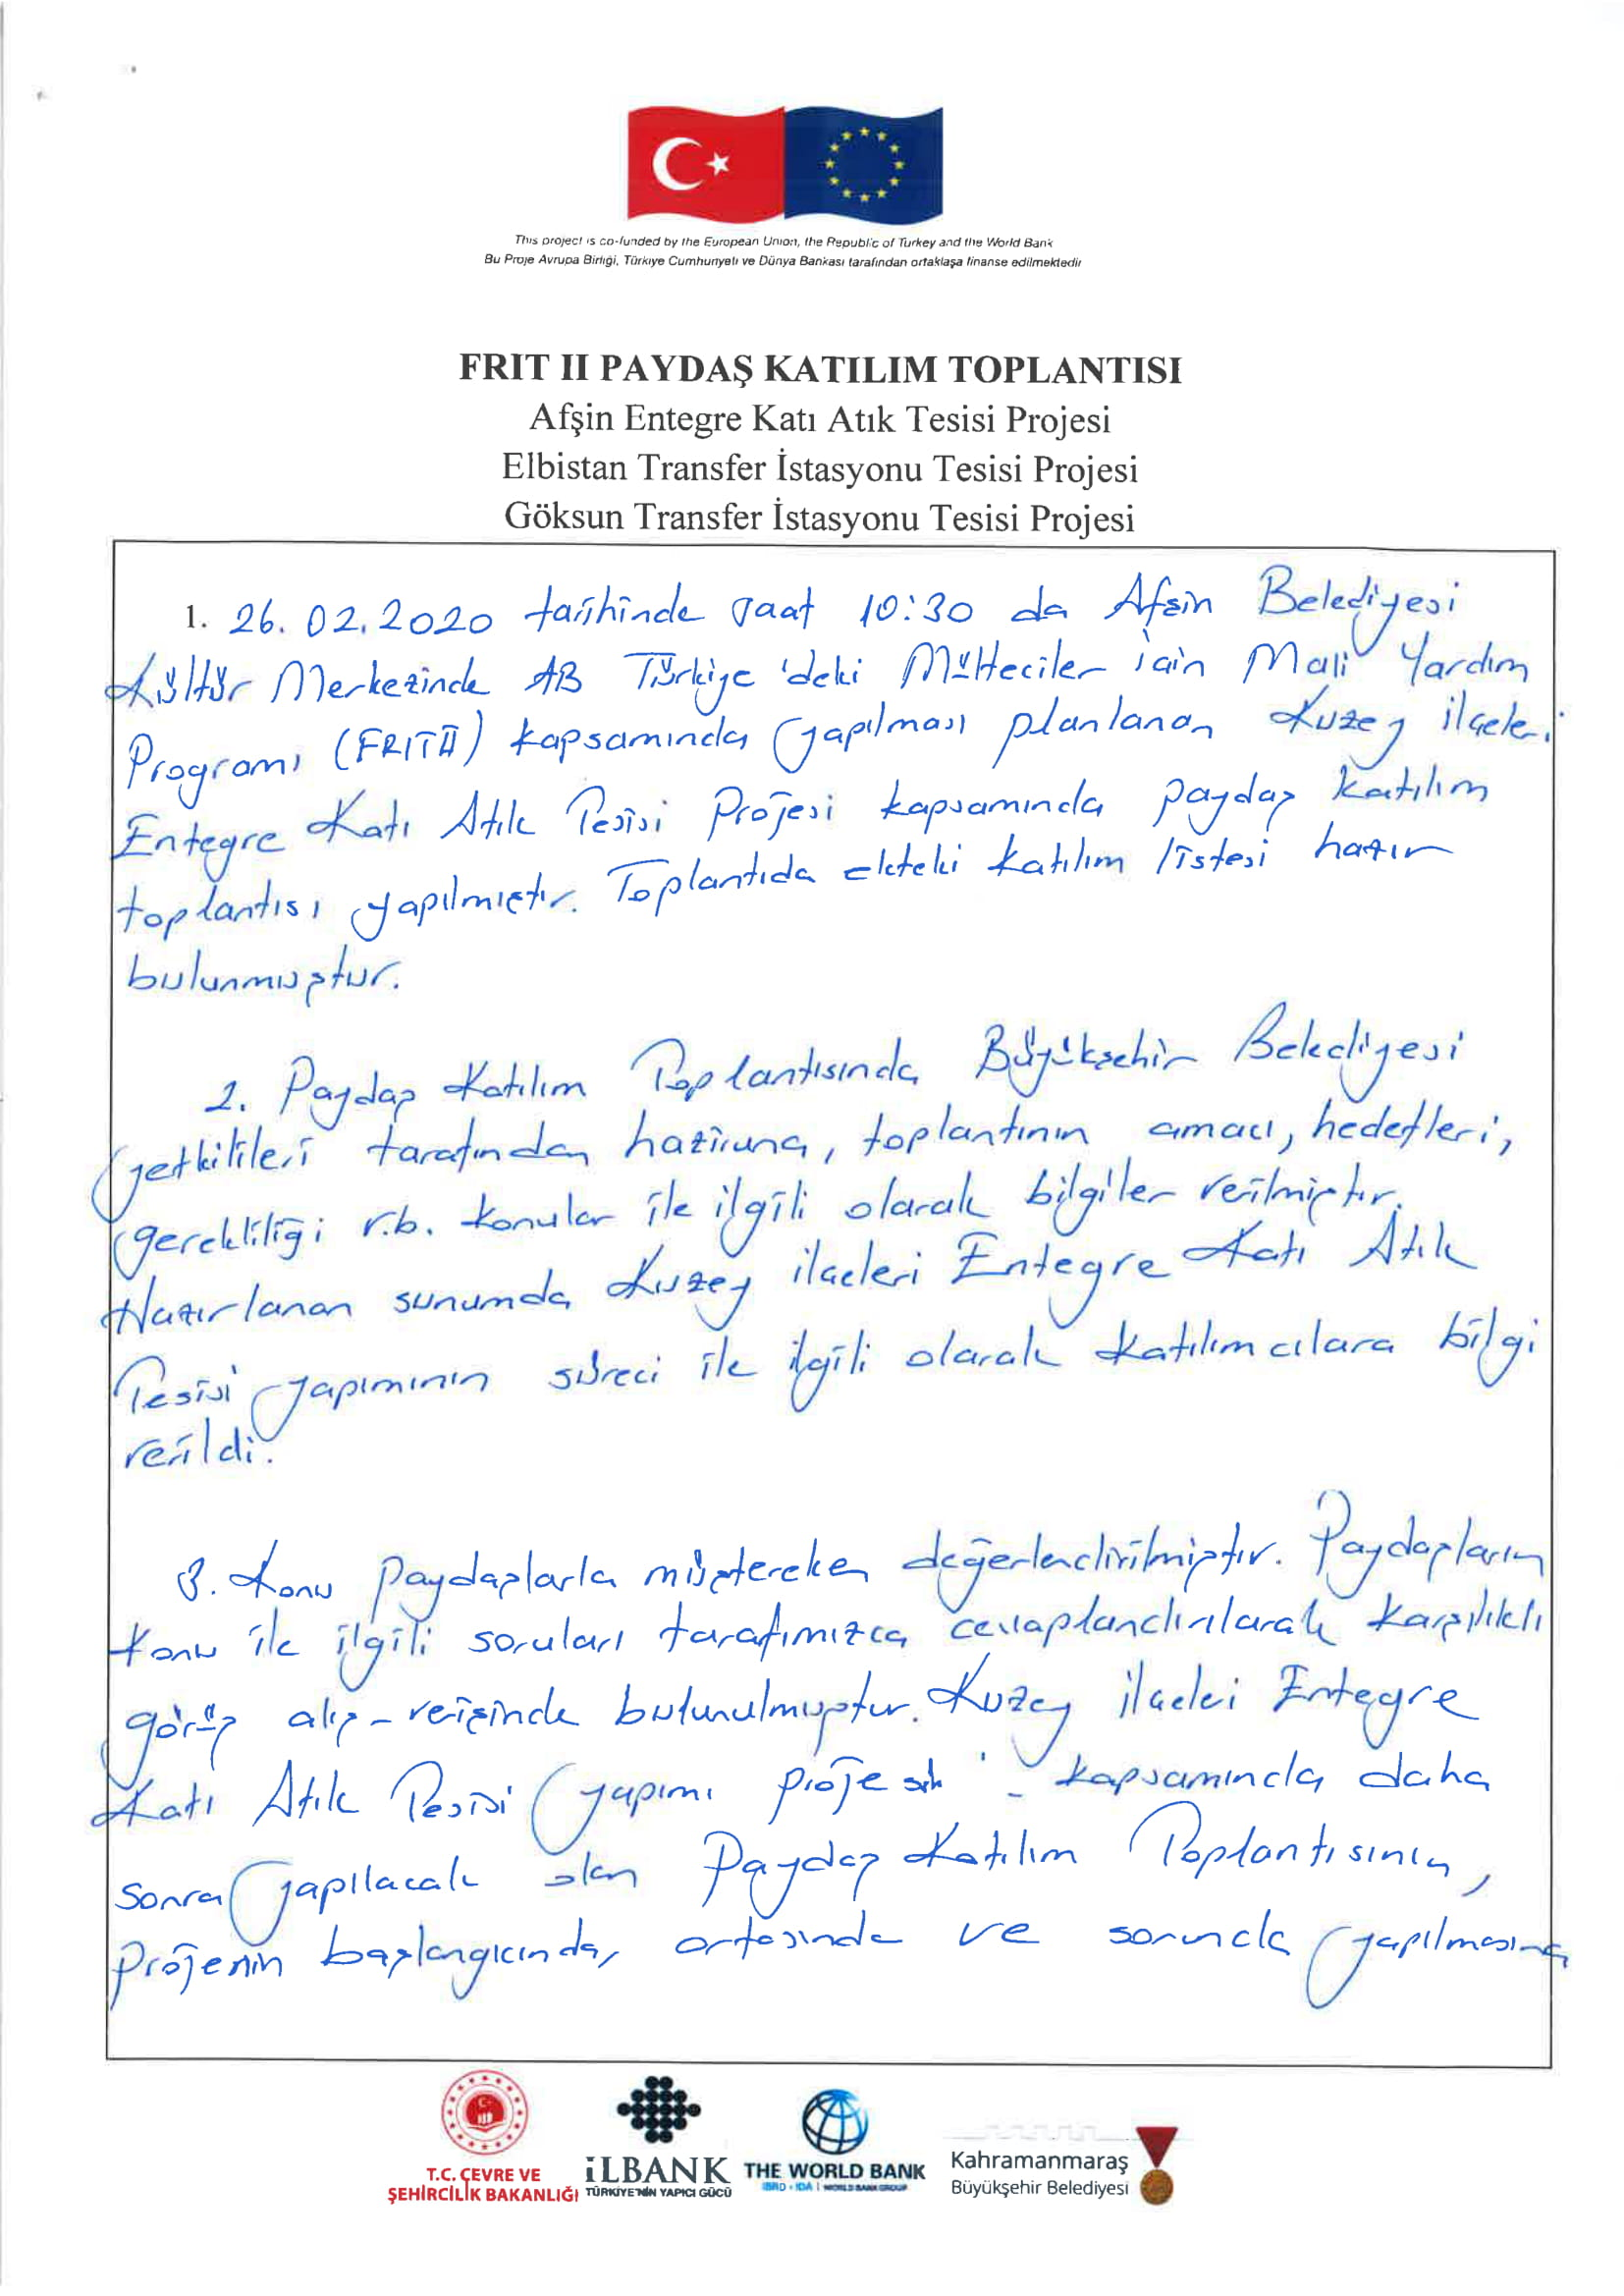 This project is co-funded by the European Union, the Republic of Turkey and the World Bank
Bu Proje Avrupa Birliği, Türkiye Cumhuriyeti ve Dünya Bankası tarafından ortaklaşa finanse edilmektedir
FRIT II PAYDAŞ KATILIM TOPLANTISI
Afşin Entegre Katı Atık Tesisi Projesi
Elbistan Transfer İstasyonu Tesisi Projesi
Göksun Transfer İstasyonu Tesisi Projesi
1. 26.02.2020 tarihinde saat 10:30 da Afşin Belediyesi
Kültür Merkezinde AB Türkiye'deki Mülteciler için Mali Yardım
Programı (FRIT II) kapsamında yapılması planlanan Kuzey ilçeleri
Entegre Katı Atık Tesisi Projesi kapsamında paydaş katılım
toplantısı yapılmıştır. Toplantıda ekteki katılım listesi hazır
bulunmuştur.
2. Paydaş Katılım Toplantısında Büyükşehir Belediyesi
yetkilileri tarafından haziruna, toplantının amacı, hedefleri,
gerekliliği v.b. konular ile ilgili olarak bilgiler verilmiştir.
Hazırlanan sunumda Kuzey ilçeleri Entegre Katı Atık
Tesisi yapımının süreci ile ilgili olarak katılımcılara bilgi
verildi.
3. Konu paydaşlarla müştereken değerlendirilmiştir. Paydaşların
konu ile ilgili soruları tarafımızca cevaplandırılarak karşılıklı
görüş alış-verişinde bulunulmuştur. Kuzey ilçeleri Entegre
Katı Atık Tesisi yapımı kapsamında daha
sonra yapılacak olan Paydaş Katılım Toplantısının,
projenin başlangıcında, ortasında ve sonunda yapılmasına
T.C. ÇEVRE VE
ŞEHİRCİLİK BAKANLIĞI
İLBANK
TÜRKİYE'NİN YAPICI GÜCÜ
THE WORLD BANK
IBRD • IDA | WORLD BANK GROUP
Kahramanmaraş
Büyükşehir Belediyesi